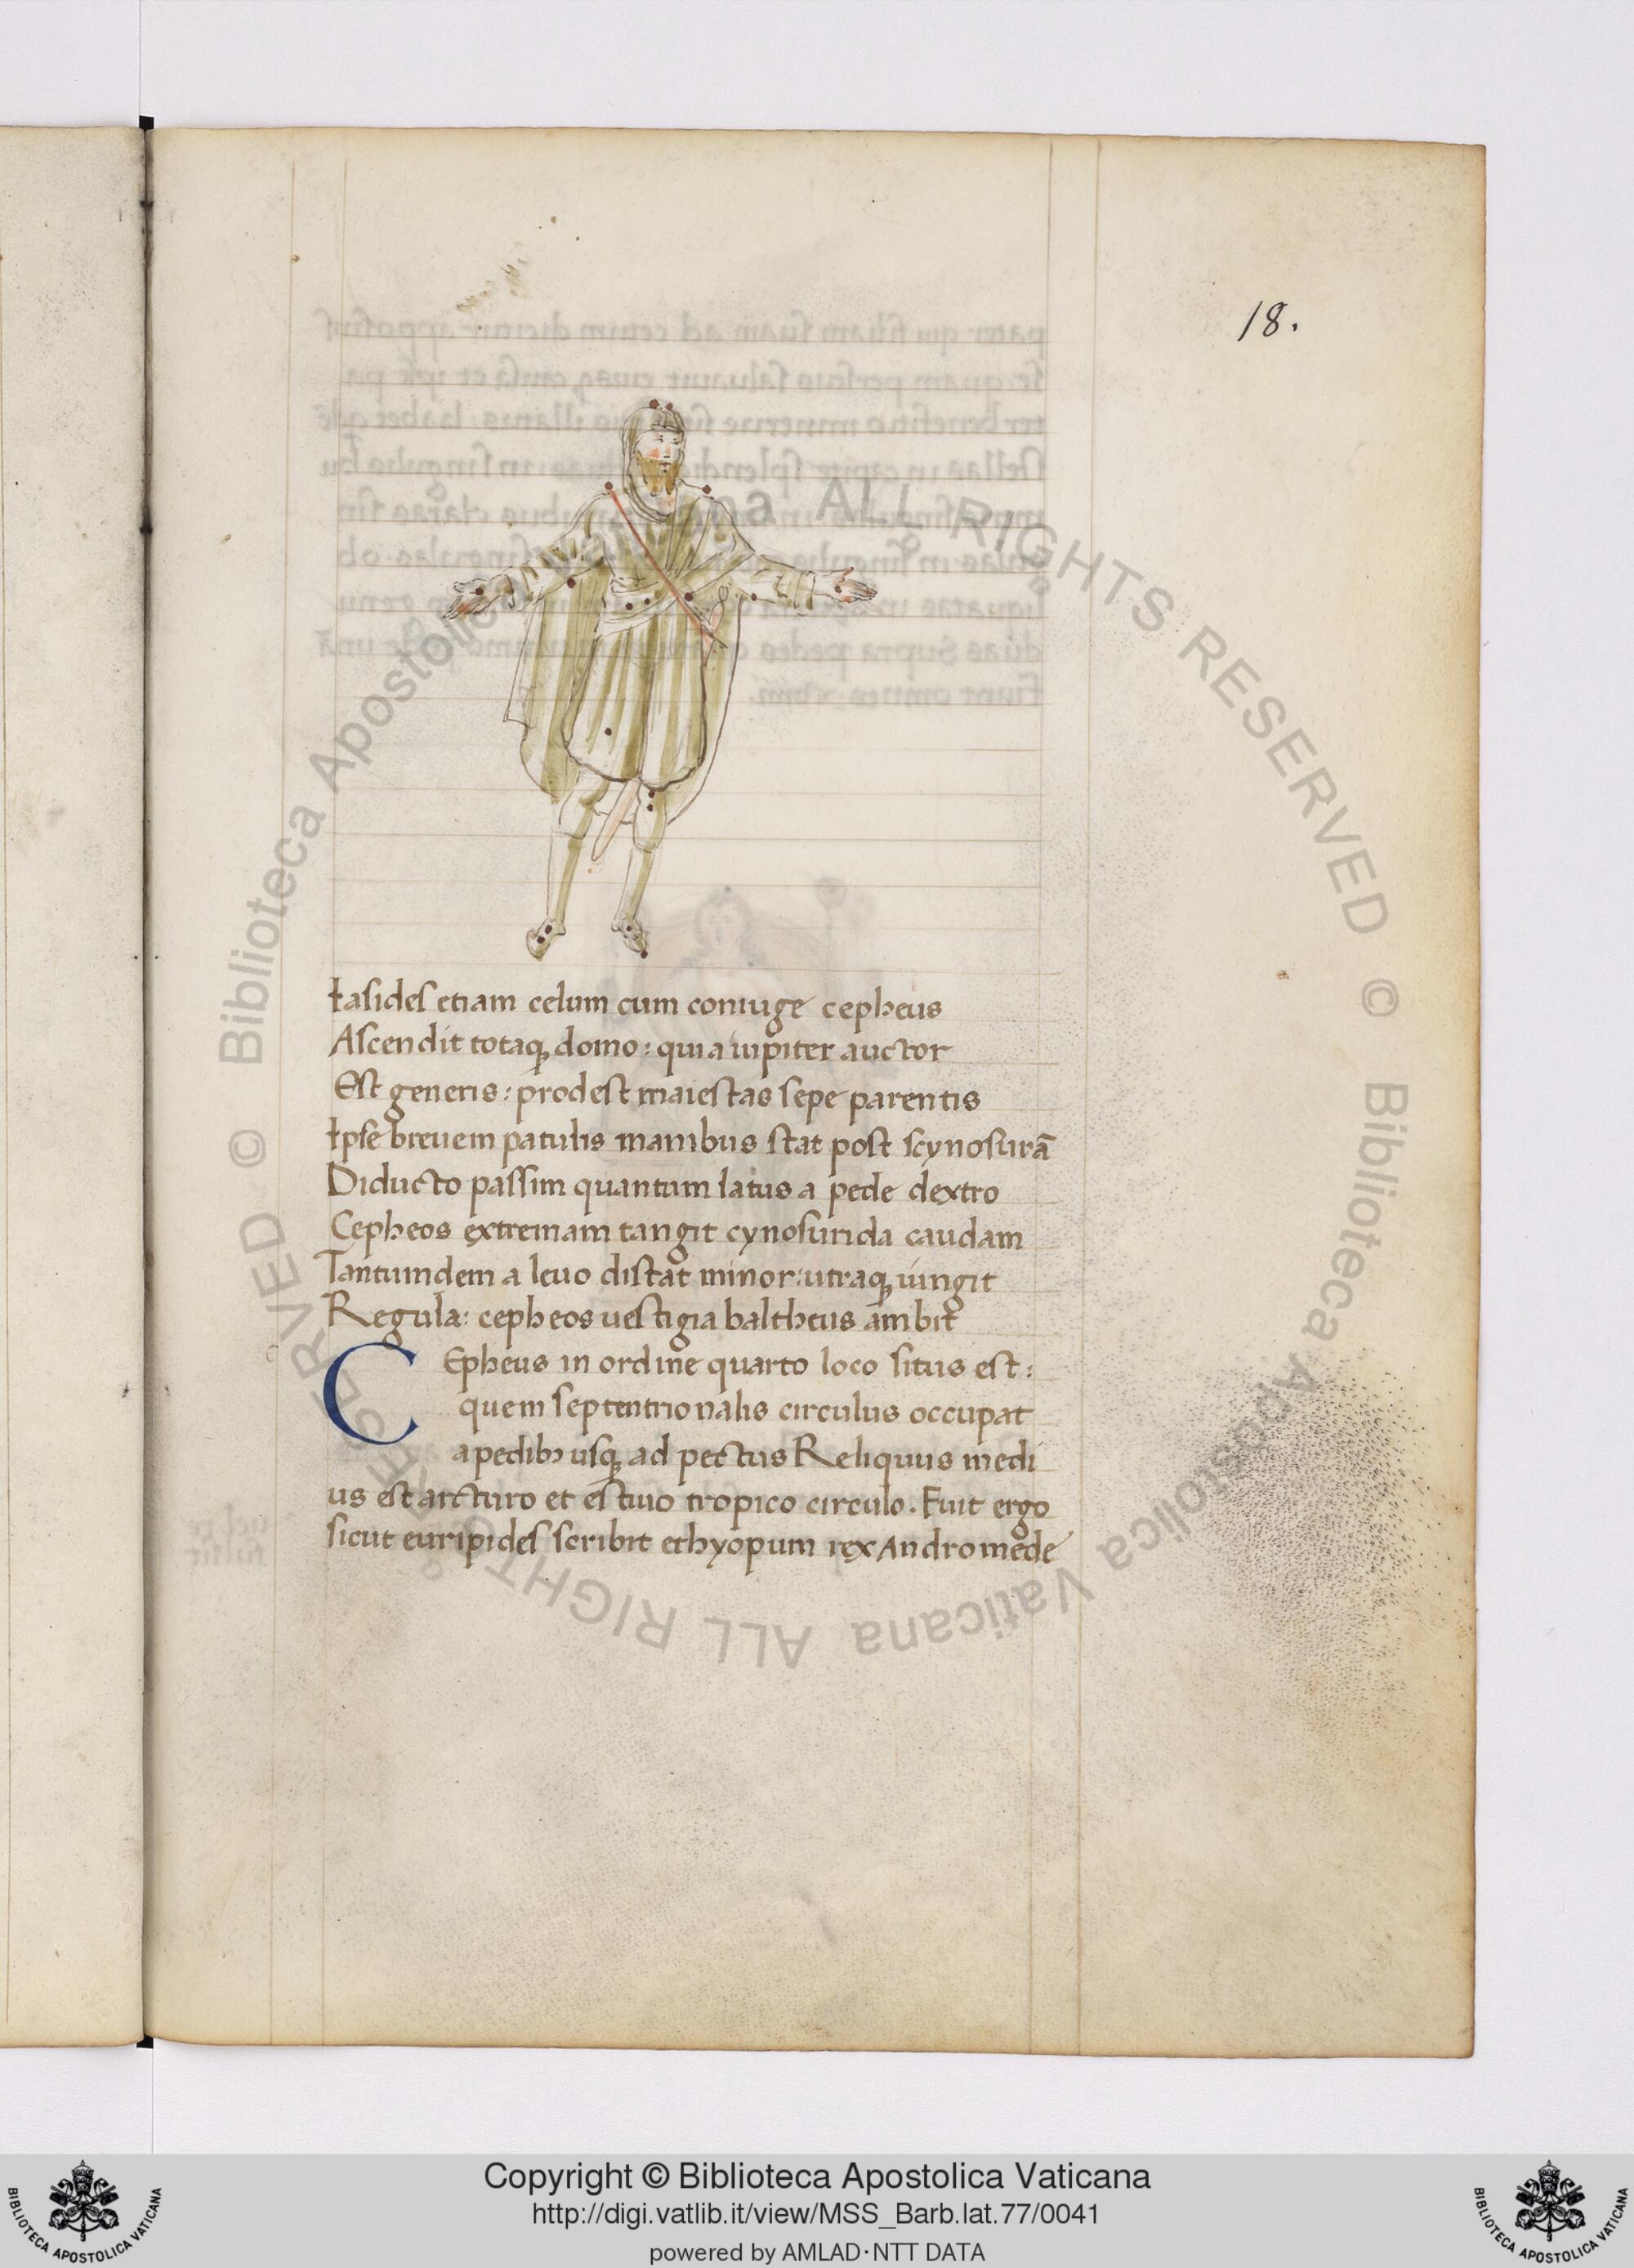 18.
Iasides etiam celum cum coniuge cepheus
Ascendit totaq; domo: quia iupiter auctor
Est generis: prodest maiestas sepe parentis
Ipse breuem patulis manibus stat post scynosurā
Diducto passim quantum latus a pede dextro
Cepheos extremam tangit cynosurida caudam
Tantundem a leuo distat minor: utraq; iungit
Regula: cepheos uestigia baltheus ambit
CEpheus in ordine quarto loco situs est:
quem septentrionalis circulus occupat
apedib; usq; ad pectus Reliquus medi
us est arcturo et estiuo tropico circulo. Fuit ergo
sicut euripides scribit ethyopum rex Andromede
© Biblioteca Apostolica Vaticana ALL RIGHTS RESERVED © Biblioteca Apostolica Vaticana ALL RIGHTS RESERVED
Copyright © Biblioteca Apostolica Vaticana
http://digi.vatlib.it/view/MSS_Barb.lat.77/0041
powered by AMLAD·NTT DATA
BIBLIOTECA APOSTOLICA VATICANA
BIBLIOTECA APOSTOLICA VATICANA